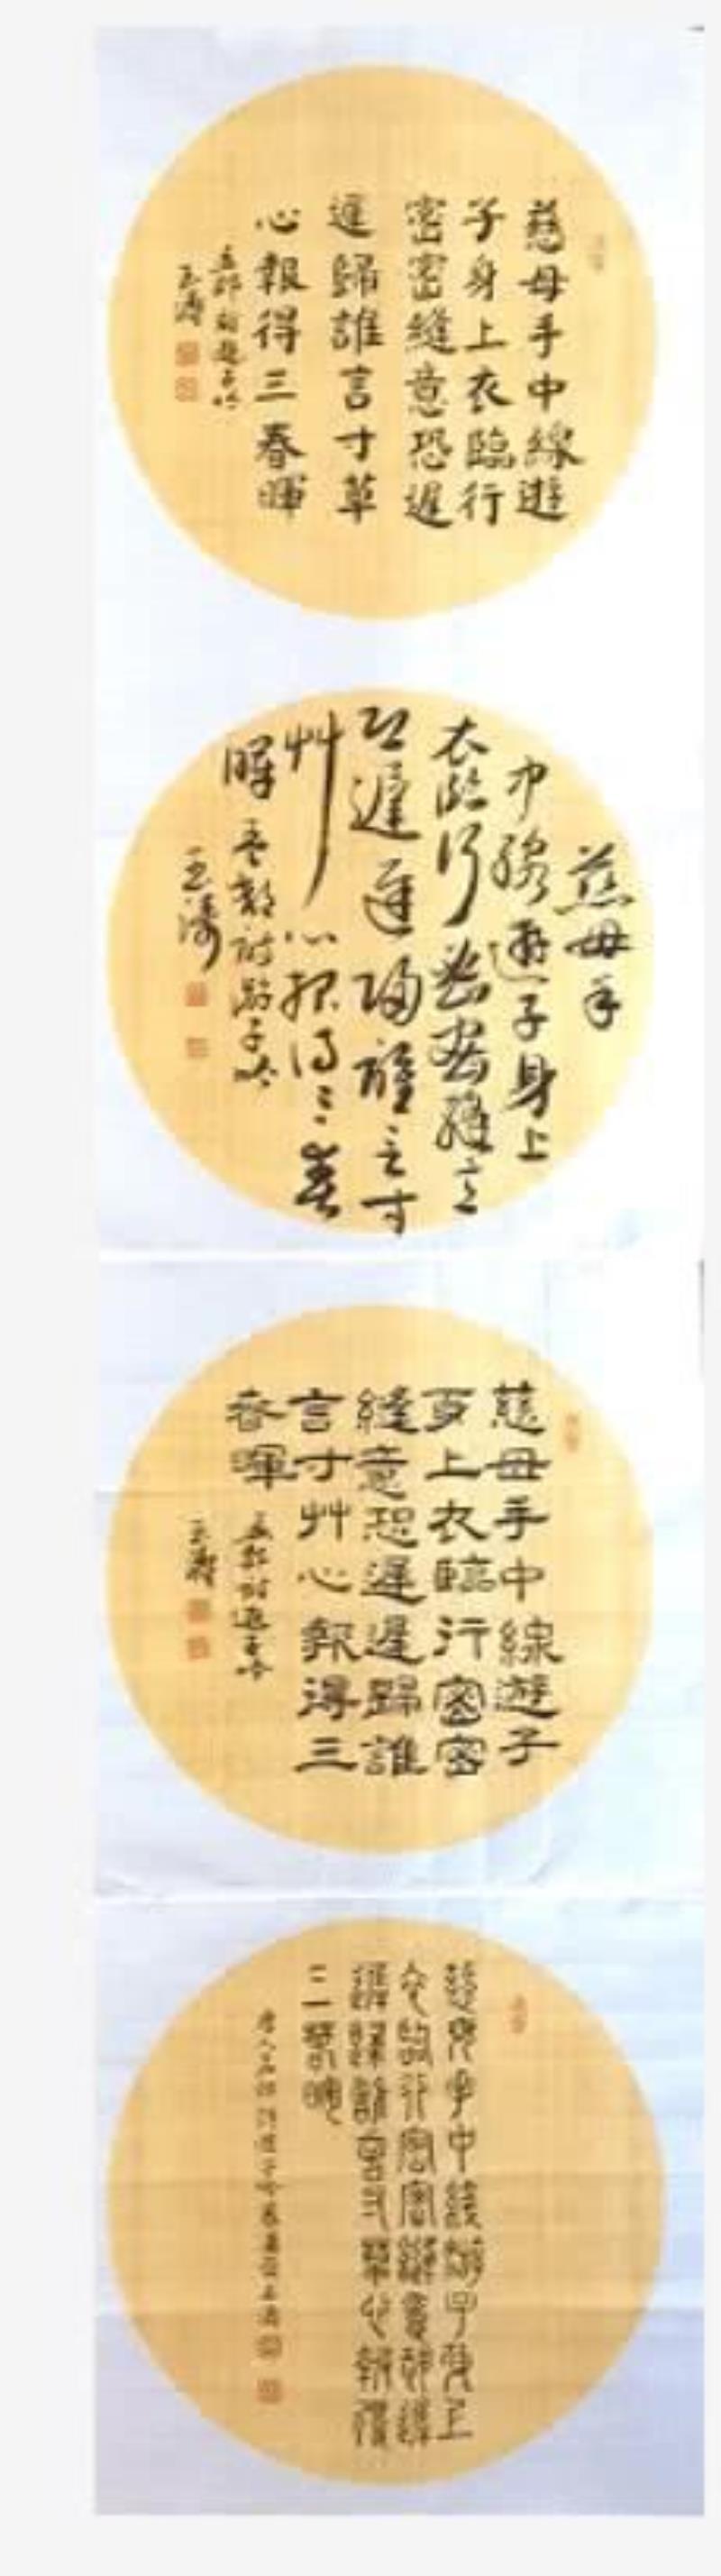 慈母手中線遊
子身上衣臨行
密密縫意恐遲
遲歸誰言寸草
心報得三春暉
孟郊詩遊子吟
王濤
慈母手
中線遊子身上
衣臨行密密縫意
恐遲遲歸誰言寸
艸心報得三春
暉 孟郊詩游子吟
王濤
慈母手中線遊子
身上衣臨行密密
縫意恐遲遲歸誰
言寸艸心報得三
春暉
孟郊詩遊子吟
王濤
慈母手中綫遊子身上
衣臨行密密縫意恐遲
遲歸誰言寸草心報得
三春暉
唐人孟郊詩遊子吟